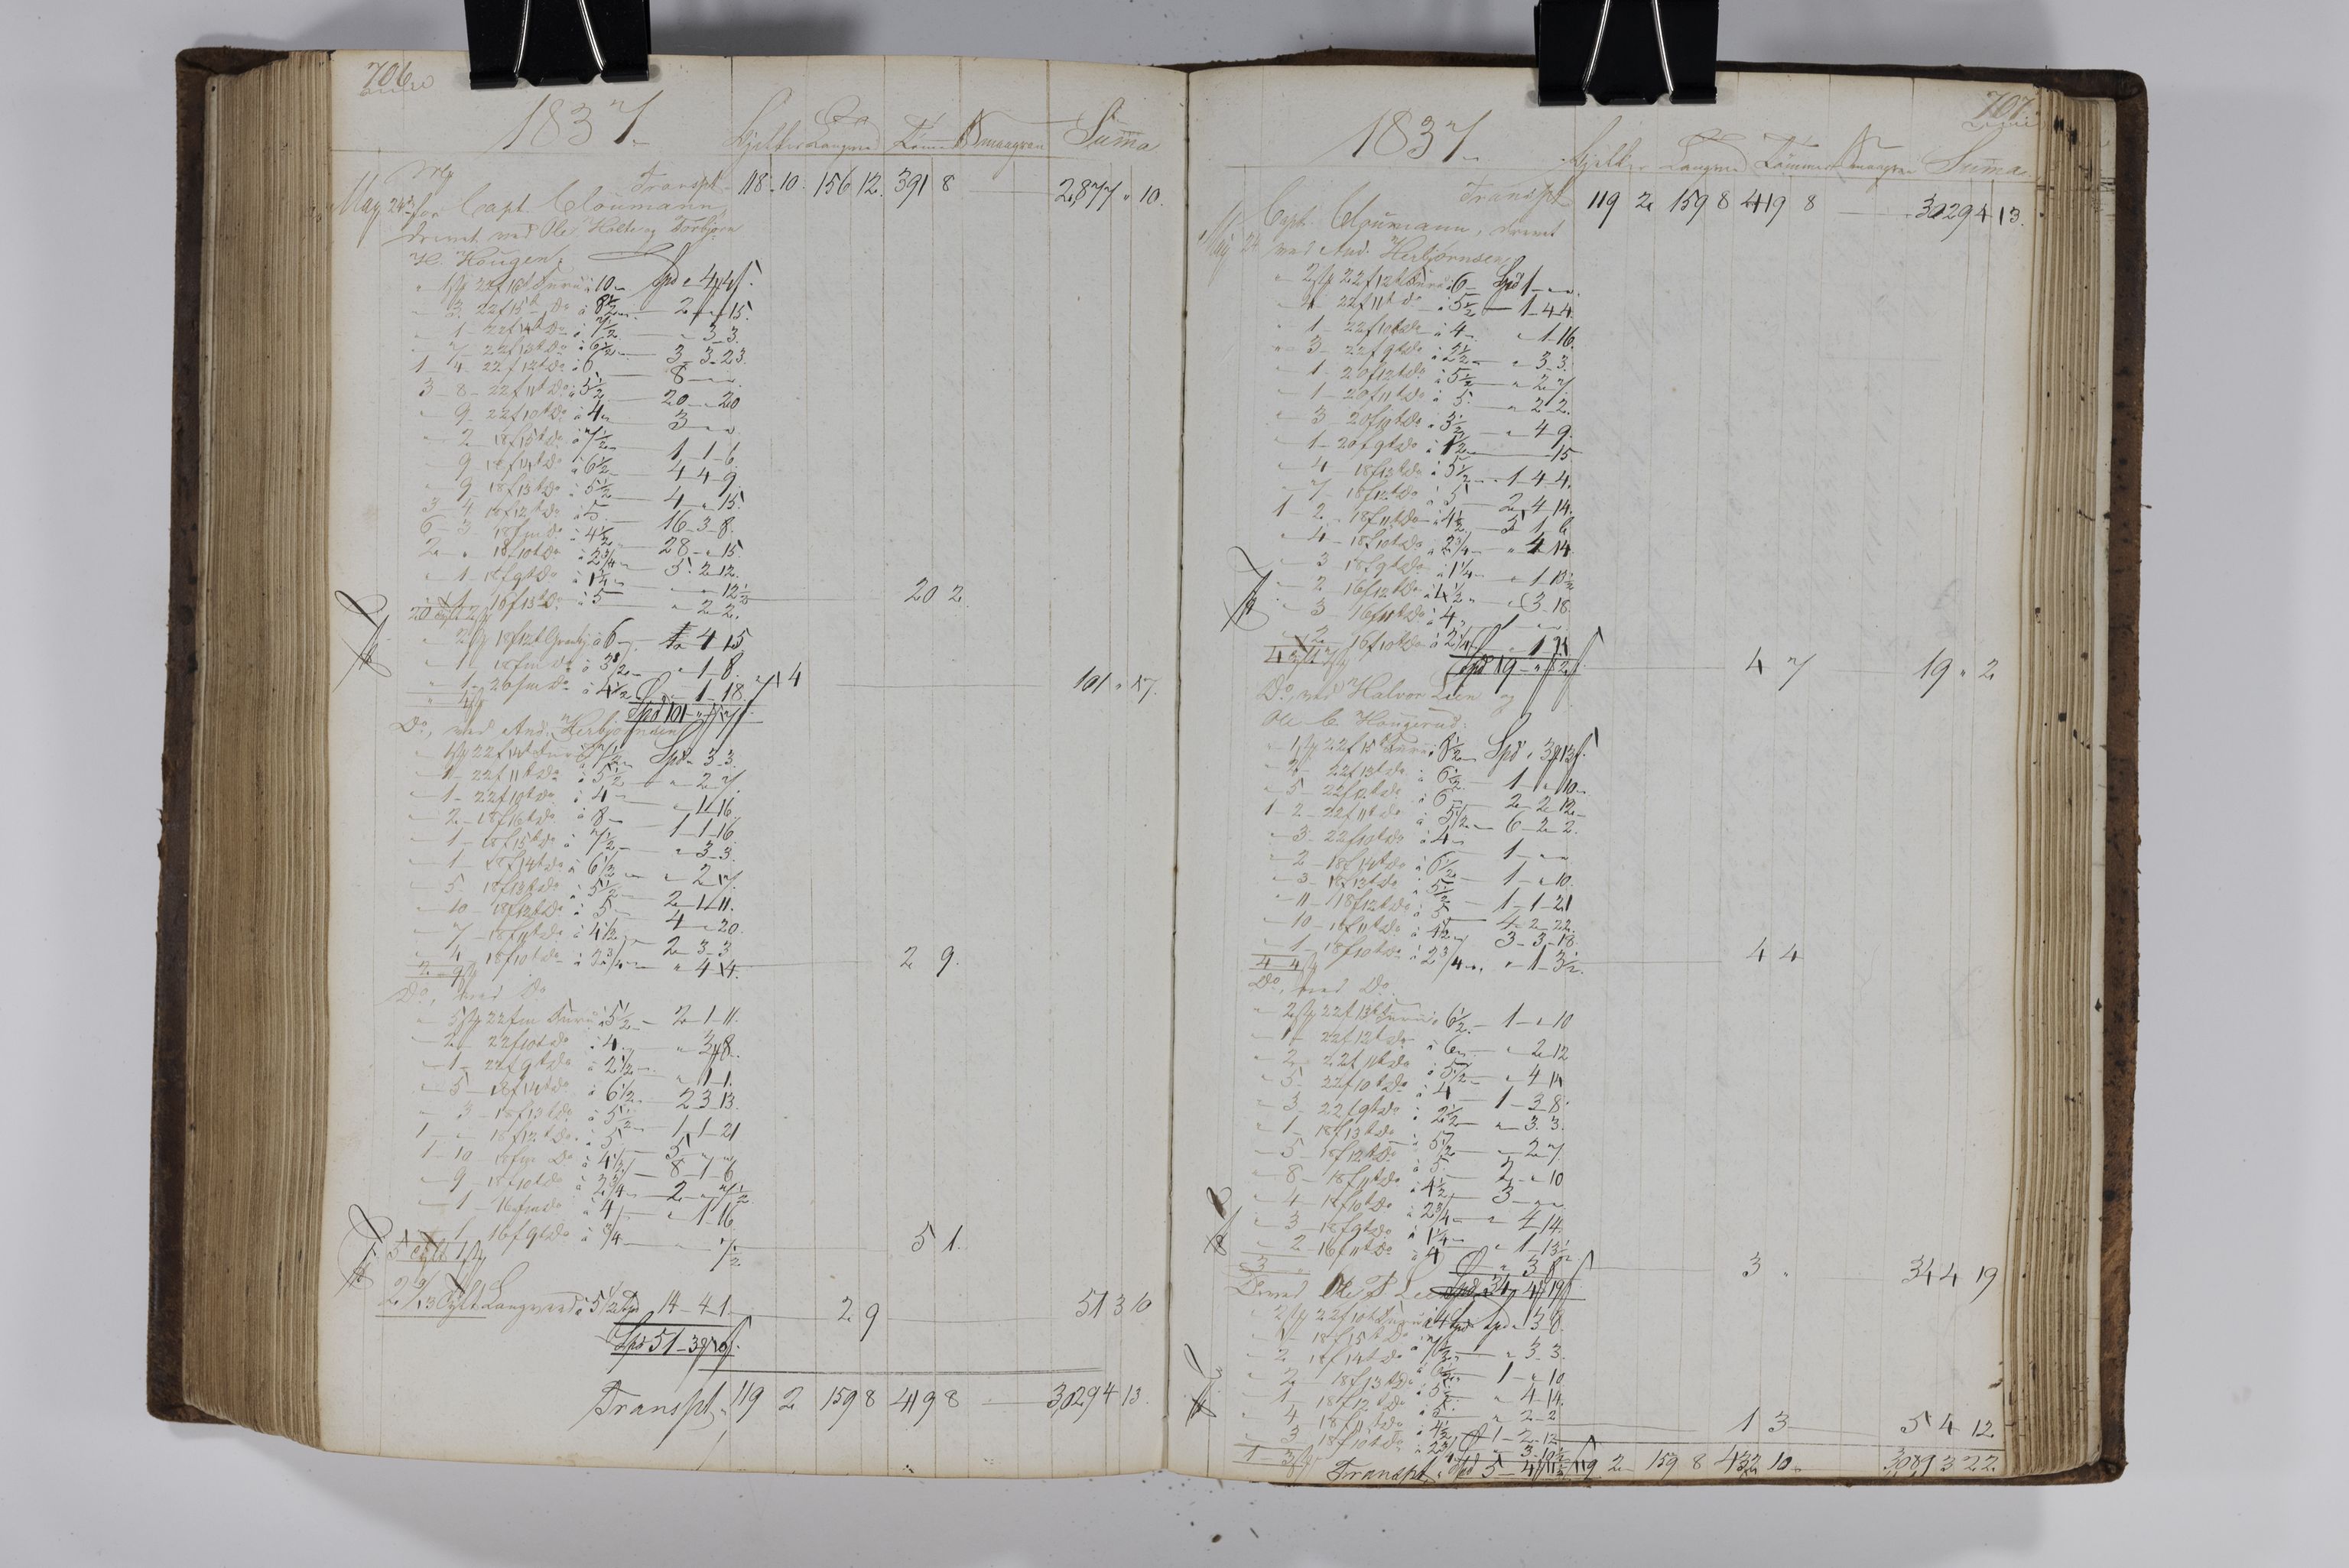 706
1837.
Kjelker Langved Tømmer Smaagran Suma
Transpt 118.10. 156 12. 391 8 2,877 " 10.
May 24 for Capt. Cloumann,
drevet ved Ole Holte og Torbjørn
H. Hougen.
" 1 ty 22 f 16 t Furu à 10 Spd " 4 # 4 s.
3 22 f 15 t Do à 8½ 2 " 15.
1 22 f 14 t Do à 7½ " 3 3.
7 22 f 13 t Do à 6½ 3 3 23.
1 4 22 f 12 t Do à 6 8 " "
3 8 22 f 11 t Do à 5½ 20 " 20
9 22 f 10 t Do à 4 3 " "
2 18 f 15 t Do à 7½ 1 1 6.
9 18 f 14 t Do à 6½ 4 4 9.
9 18 f 13 t Do à 5½ 4 " 15.
3 4 18 f 12 t Do à 5 16 3 8.
6 3 18 f 11 t Do à 4½ 28 " 15.
2 " 18 f 10 t Do à 2¾ 5 2 12.
1 18 f 9 t Do à 1¼ " " 12½
1 16 f 13 t Do à 5 " 2 2.
20 tylt 2 ty 20 2.
2 ty 18 f 12 t à 6 4 15
1 18 f 11 t Do à 3½ " 1 8.
1 20 f 11 t Do à 4½ " 1 18.
" 4 ty Spd 101 " 17 s. 4 101 " 17.
Do, ved And. Herbjørnsen
1 ty 22 f 14 t Furu à 7½ Spd " 3 3.
1 22 f 11 t Do à 5½ " 2 7.
1 22 f 10 t Do à 4 " 1 16.
2 18 f 16 t Do à 8 1 1 16.
1 18 f 15 t Do à 7½ " 3 3.
1 18 f 14 t Do à 6½ " 2 17.
5 18 f 13 t Do à 5½ 2 1 11.
10 18 f 12 t Do à 5 4 " 20.
7 18 f 11 t Do à 4½ 2 3 3.
4 18 f 10 t Do à 2¾ " 4 14.
2 9 ty 2 9.
Do, ved Do
5 ty 22 f 11 t Furu à 5½ 2 1 11.
2 22 f 10 t Do à 4 " 3 8.
1 22 f 9 t Do à 2½ " 1 1.
5 18 f 14 t Do à 6½ 2 3 13.
3 18 f 13 t Do à 5½ 1 1 21
1 " 18 f 12 t Do à 5 5 " "
1 10 18 f 11 t Do à 4½ 8 1 6
9 18 f 10 t Do à 2¾ 2 " 7½
1 16 f 11 t Do à 4 " 1 16
1 16 f 9 t Do à ¾ " " 7½
5 tylt 1 ty 5 1.
2 9/13 Tylt Langved à 5½ Spd 14 4 1. 2 9 51 3 10
Spd 51 3 # 10 s.
Transpt. 119 2 159 8 419 8 3,029 4 13.
707.
1837.
Kjelker Langved Tømmer Smaagran Suma
Transpt 119 2 159 8 419 8 3029 4 13.
May 24 Capt. Cloumann, drevet
ved And. Herbjørnsen
2 ty 22 f 12 t Furu à 6 Spd 1 " "
4 22 f 11 t Do à 5½ 1 4 4.
1 22 f 10 t Do à 4 " 1 16.
3 22 f 9 t Do à 2½ " 3 3.
1 20 f 12 t Do à 5½ " 2 7.
1 20 f 11 t Do à 5 " 2 2.
3 20 f 10 t Do à 3½ " 4 9.
1 20 f 9 t Do à 1½ 15
4 18 f 13 t Do à 5½ 1 4 4.
7 18 f 12 t Do à 5 2 4 14.
1 2 18 f 11 t Do à 4½ 5 1 6
4 18 f 10 t Do à 2¾ " 4 14
3 18 f 9 t Do à 1¼ " 1 13½
2 16 f 12 t Do à 4½ " 3 18.
3 16 f 11 t Do à 4 1 " "
2 16 f 10 t Do à 2¼
4 7 ty Spd 19 " 2 s. 4 7 19 " 2
Do ved Halvor Lien og
Ole C. Haugerud.
1 ty 22 f 15 t Furu à 8½ Spd " 3 # 13 s.
2 22 f 13 t Do à 6½ 1 " 10
5 22 f 12 t Do à 6 2 2 12
1 2 22 f 11 t Do à 5½ 6 2 2.
3 22 f 10 t Do à 4 1 " "
2 18 f 14 t Do à 6½ 1 " 10.
3 18 f 13 t Do à 5½ 1 1 21
11 18 f 12 t Do à 5 4 2 22.
10 18 f 11 t Do à 4½ 3 3 18.
1 18 f 10 t Do à 2¾ " 1 3½.
4 4 ty 4 4
Do, ved Do.
2 ty 22 f 13 t Furu à 6½ 1 " 10
1 22 f 12 t Do à 6 " 2 12
2 22 f 11 t Do à 5½ " 4 14
5 22 f 10 t Do à 4 1 3 8.
3 22 f 9 t Do à 2½ " 3 3.
1 18 f 13 t Do à 5½ " 2 7.
5 18 f 12 t Do à 5 2 " 10
8 18 f 11 t Do à 4½ 3 " "
4 18 f 10 t Do à 2¾ " 4 14.
3 18 f 9 t Do à 1¼ " 1 13½.
2 16 f 11 t Do à 4 " 3 8
3 " Spd 34 4 # 19 s 3 " 34 4 19
Do ved Ole P. Lien
2 ty 22 f 10 t Furu à 4 Spd " 3 8.
1 18 f 15 t Do à 7½ " 3 3.
2 18 f 14 t Do à 6½ 1 " 10
2 18 f 13 t Do à 5½ " 4 14.
1 18 f 12 t Do à 5 " 2 2
4 18 f 11 t Do à 4½ 1 2 12
3 18 f 10 t Do à 2¾ " 3 10½
1 3 ty Spd 5 4 # 11½ 1 3 5 4 12
Transpt. 119 2 159 8 432 10 3089 3 22